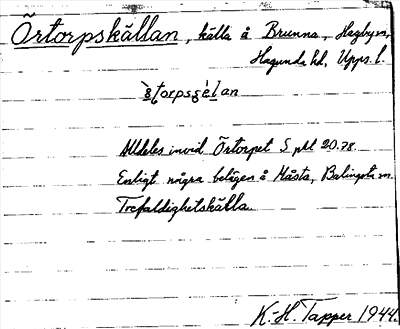 Örtorpskällan, källa å Brunna, Hagby sn,
Hagunda hd, Upps. l.
Alldeles invid Örtorpet S pkt 20.78.
Enligt några belägen å Måsta, Balingsta sn.
Trefaldighetskälla.
K.-H. Tapper 1944.